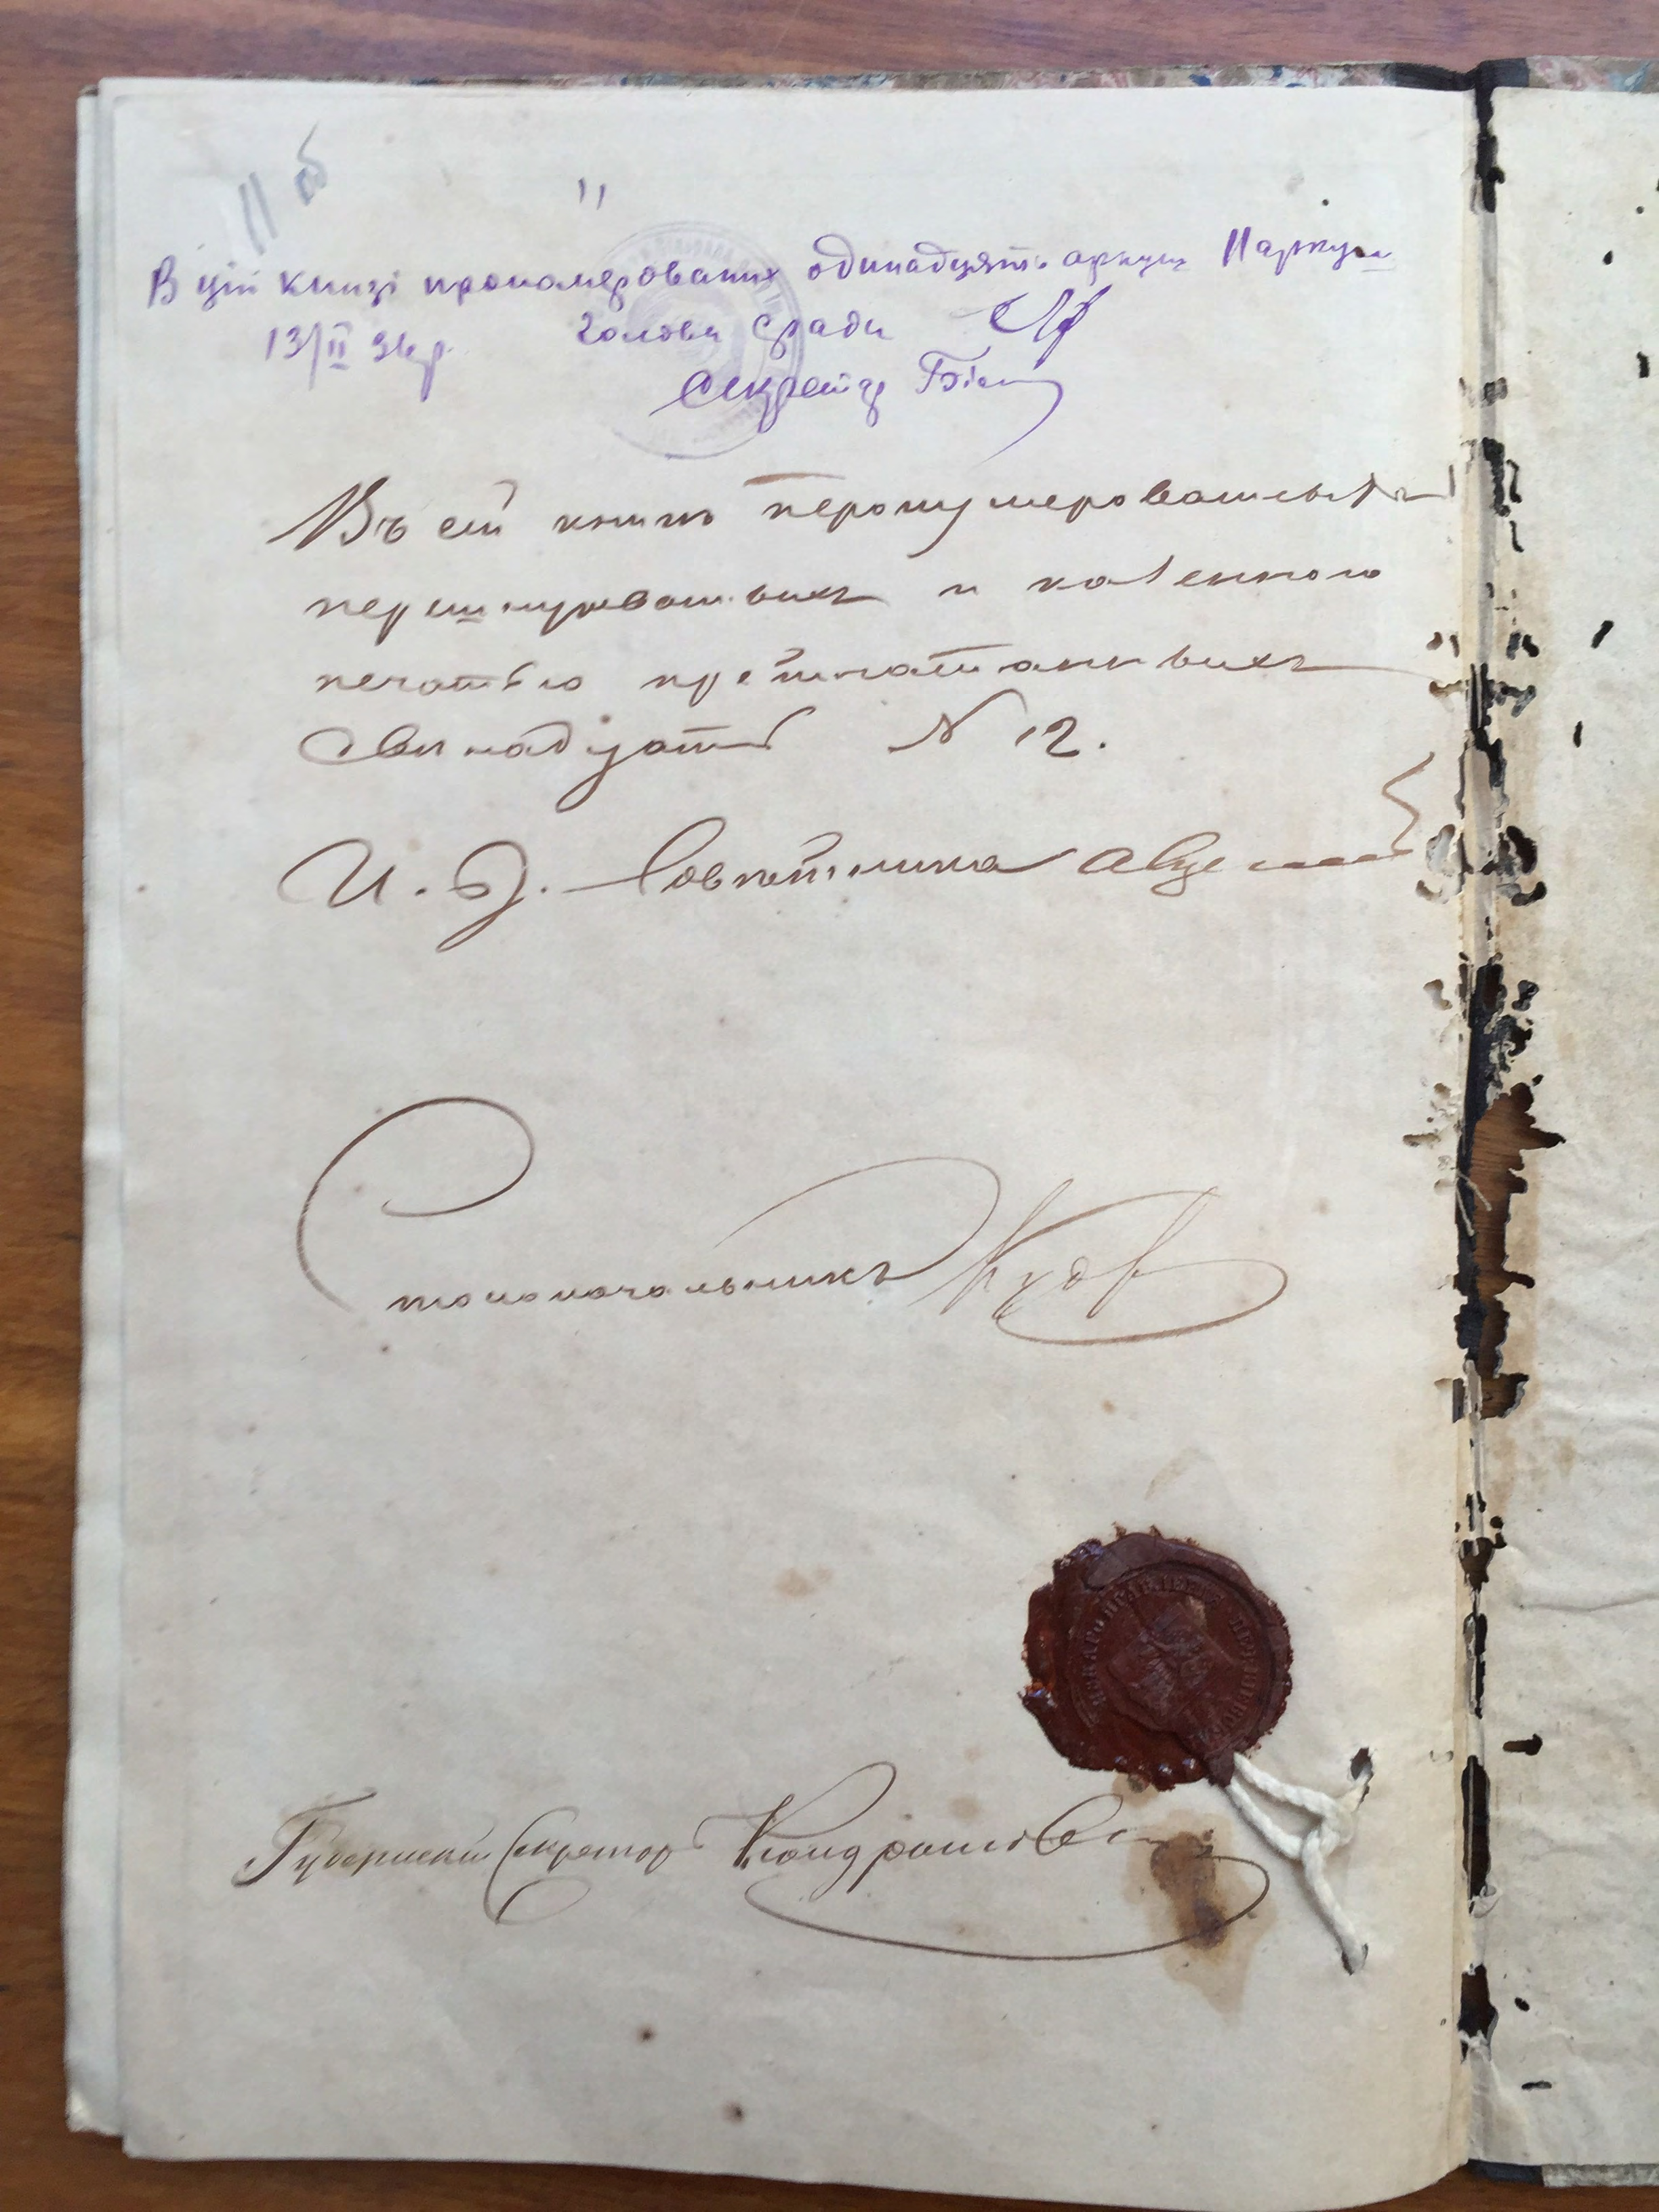 11 об
11
В цій книзі прономерованих одинадцять аркуш 11 аркуш
13/II 36р. Голова Сради
Секретар
Въ сей книгѣ перонумерованныхъ
перешнурованныхъ и казенною
печатью препечатанныхъ
двенадцать N 12.
И. Д. Советника
Столоначальникъ
Губернский Секретарь